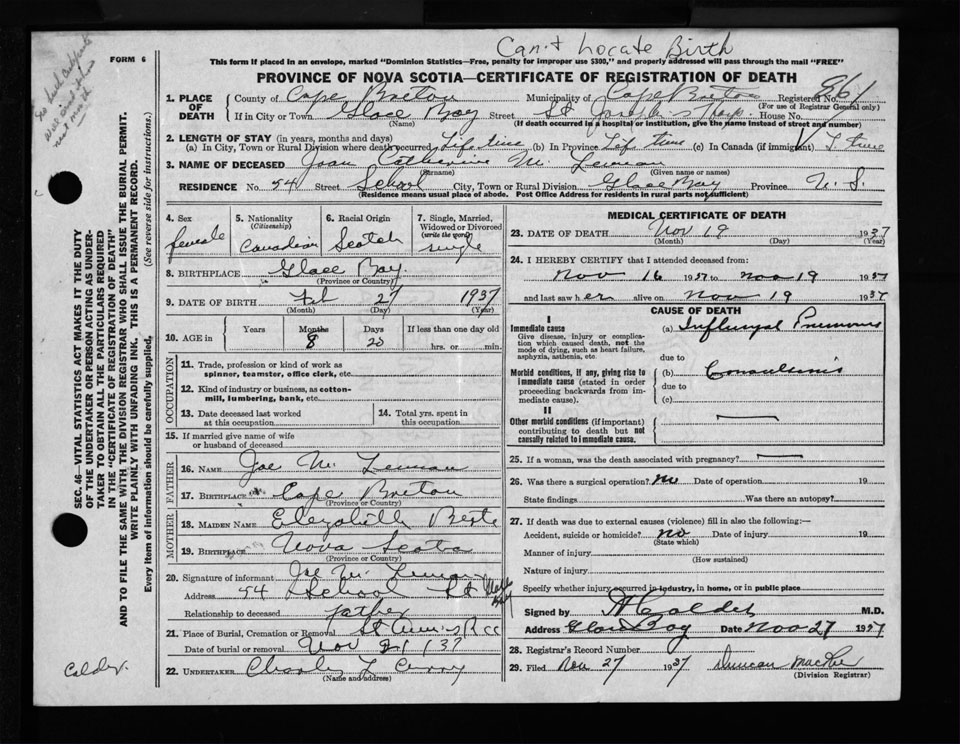 Can't Locate Birth
FORM 6
This form if placed in an envelope, marked "Dominion Statistics—Free, penalty for improper use $300," and properly addressed will pass through the mail "FREE"
PROVINCE OF NOVA SCOTIA—CERTIFICATE OF REGISTRATION OF DEATH
861
1. PLACE OF DEATH { County of Cape Breton Municipality of Cape Breton Registered No.
(For use of Registrar General only)
If in City or Town Glace Bay Street St Joseph's Hosp. House No.
(Name) (If death occurred in a hospital or institution, give the name instead of street and number)
2. LENGTH OF STAY (in years, months and days)
(a) In City, Town or Rural Division where death occurred Life time (b) In Province Life time (c) In Canada (if immigrant) L. time
3. NAME OF DECEASED Joan Catherine Mc Lennan
(Surname) (Given name or names)
RESIDENCE No. 54 Street School City, Town or Rural Division Glace Bay Province N. S.
(Residence means usual place of abode. Post Office Address for residents in rural parts not sufficient)
4. Sex female
5. Nationality (Citizenship) Canadian
6. Racial Origin Scotch
7. Single, Married, Widowed or Divorced (write the word) single
8. BIRTHPLACE Glace Bay
(Province or Country)
9. DATE OF BIRTH Feb 27 1937
(Month) (Day) (Year)
10. AGE in Years Months 8 Days 20 If less than one day old hrs. or min.
OCCUPATION
11. Trade, profession or kind of work as spinner, teamster, office clerk, etc.
12. Kind of industry or business, as cotton-mill, lumbering, bank, etc.
13. Date deceased last worked at this occupation
14. Total yrs. spent in this occupation
15. If married give name of wife or husband of deceased
FATHER
16. NAME Joe Mc Lennan
17. BIRTHPLACE Cape Breton
(Province or Country)
MOTHER
18. MAIDEN NAME Elizabeth
19. BIRTHPLACE Nova Scotia
(Province or Country)
20. Signature of informant Joe Mc Lennan
Address 54 School St Glace Bay
Relationship to deceased father
21. Place of Burial, Cremation or Removal St Ann's R C C
Date of burial or removal Nov 21/37
22. UNDERTAKER Charles L Curry
(Name and address)
MEDICAL CERTIFICATE OF DEATH
23. DATE OF DEATH Nov 19 1937
(Month) (Day) (Year)
24. I HEREBY CERTIFY that I attended deceased from:
Nov 16 1937 to Nov 19 1937
and last saw her alive on Nov 19 1937
CAUSE OF DEATH
I
Immediate cause (a) Influenzal Pneumonia
Give disease, injury or complication which caused death, not the mode of dying, such as heart failure, asphyxia, asthenia, etc.
due to
Morbid conditions, if any, giving rise to immediate cause (stated in order proceeding backwards from immediate cause).
(b) Convulsions
due to
(c)
II
Other morbid conditions (if important) contributing to death but not causally related to immediate cause.
25. If a woman, was the death associated with pregnancy?
26. Was there a surgical operation? no Date of operation 19
State findings Was there an autopsy?
27. If death was due to external causes (violence) fill in also the following:—
Accident, suicide or homicide? no Date of injury 19
(State which)
Manner of injury
(How sustained)
Nature of injury
Specify whether injury occurred in industry, in home, or in public place
Signed by A Calder M.D.
Address Glace Bay Date Nov 27 1937
28. Registrar's Record Number
29. Filed Nov 27 1937 Duncan MacRae
(Division Registrar)
SEC. 46—VITAL STATISTICS ACT MAKES IT THE DUTY
OF THE UNDERTAKER OR PERSON ACTING AS UNDER-
TAKER TO OBTAIN ALL THE PARTICULARS REQUIRED
IN THE "CERTIFICATE OF REGISTRATION OF DEATH"
AND TO FILE THE SAME WITH THE DIVISION REGISTRAR WHO SHALL ISSUE THE BURIAL PERMIT.
WRITE PLAINLY WITH UNFADING INK. THIS IS A PERMANENT RECORD.
Every item of information should be carefully supplied. (See reverse side for instructions.)
Calder.